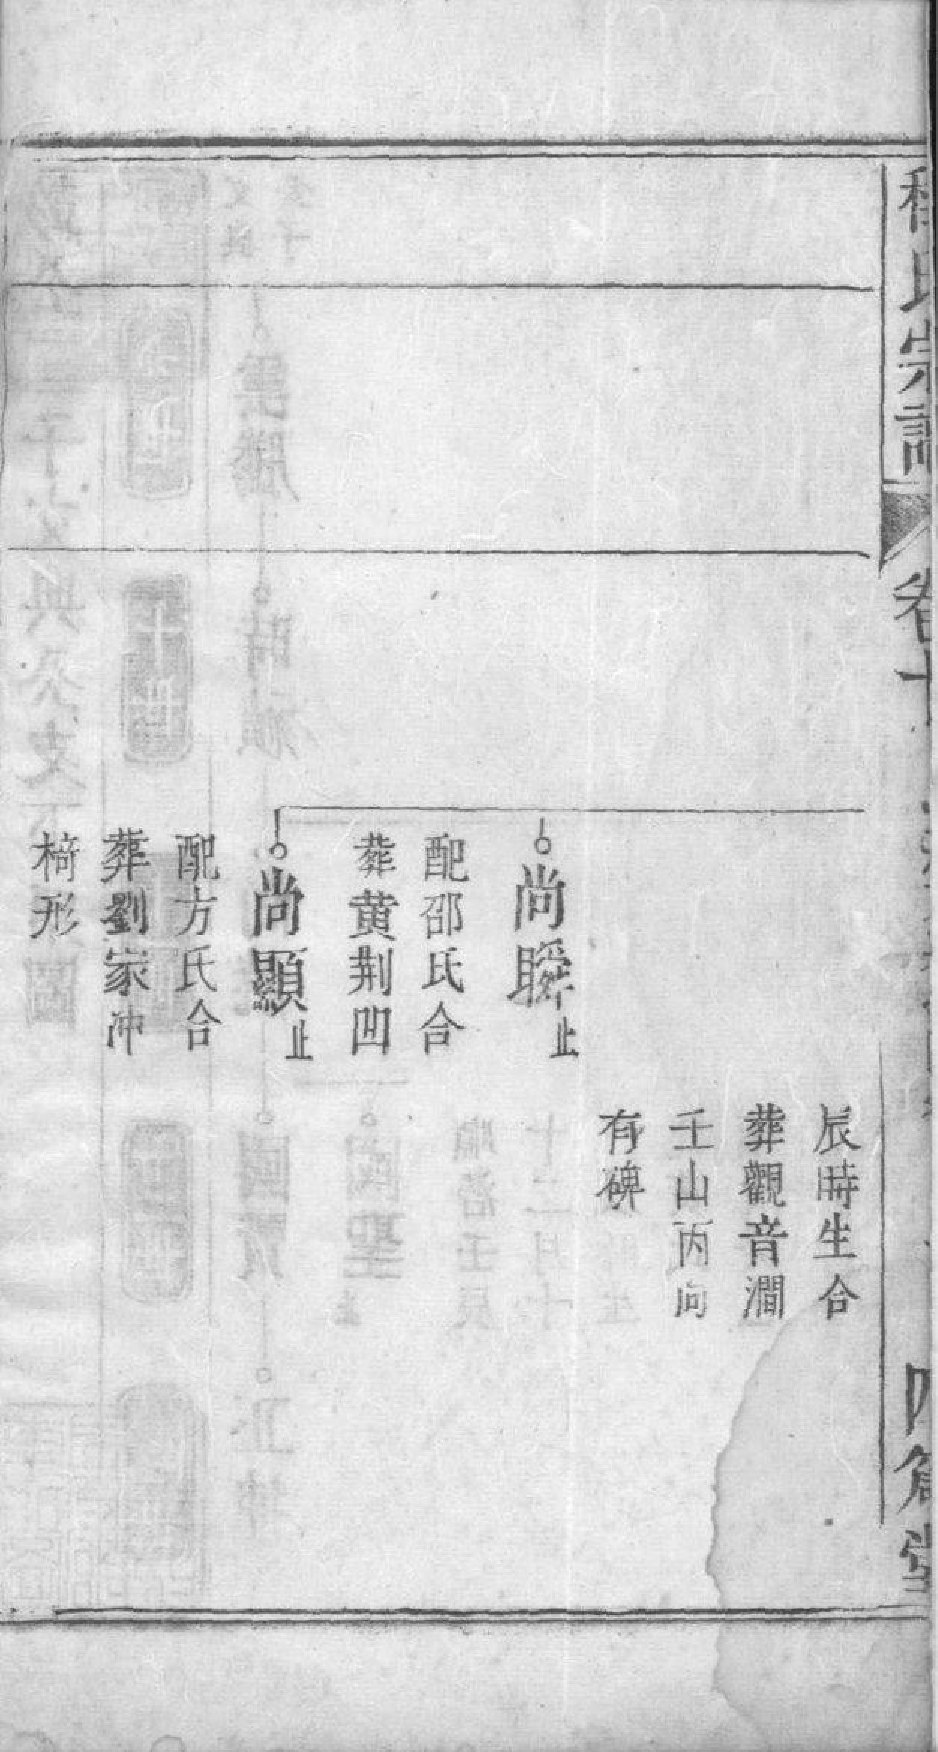 氏宗譜
卷十
堂
辰時生合
葬觀音澗
壬山丙向
有碑
尚瞬止
配邵氏合
葬黄荆凹
尚顯止
配方氏合
葬劉家冲
椅形